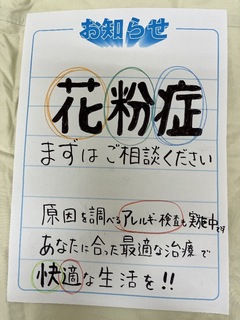 お知らせ
花粉症
まずはご相談ください
原因を調べるアレルギー検査も実施中です
あなたに合った最適な治療で
快適な生活を!!